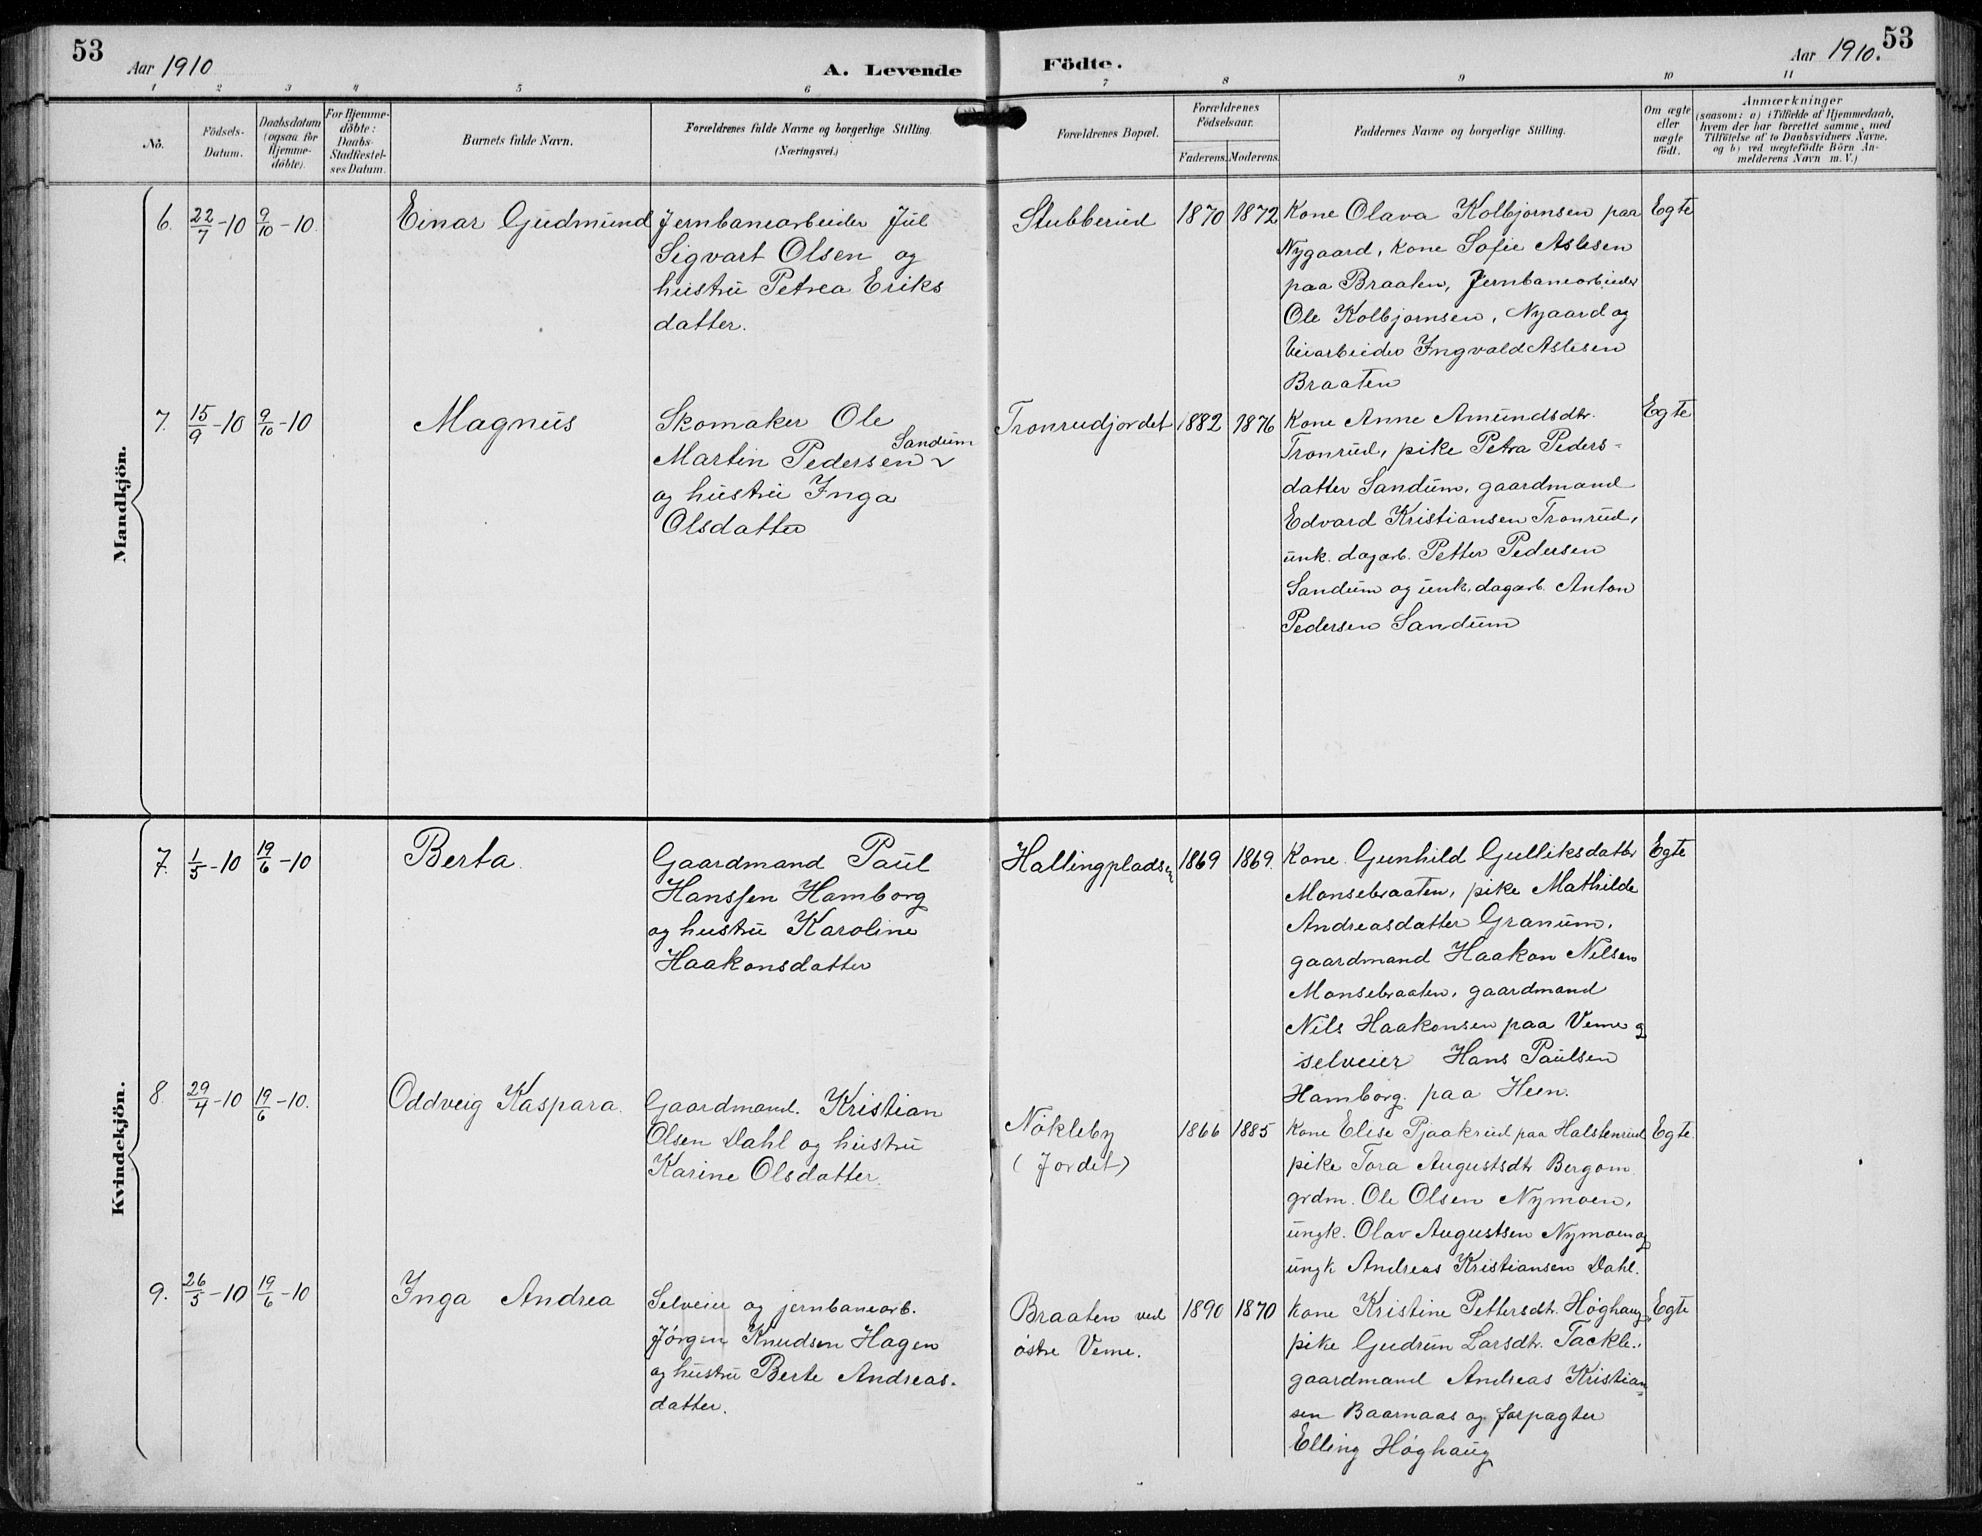 53
Aar 1910
A. Levende
Födte.
Aar 1910.
53
1 2 3 4 5 6 7 8 9 10 11
No.
Födsels-
Datum.
Daabsdatum
(ogsaa for
Hjemme-
döbte).
For Hjemme-
döbte:
Daabs-
Stadfæstel-
ses Datum.
Barnets fulde Navn.
Forældrenes fulde Navne og borgerlige Stilling.
(Næringsvei.)
Forældrenes Bopæl.
Forældrenes
Födselsaar.
Faderens. Moderens.
Faddernes Navne og borgerlige Stilling.
Om ægte
eller
uægte
födt.
Anmærkninger
(saasom: a) i Tilfælde af Hjemmedaab,
hvem der har forrettet samme, med
Tilföielse af to Daabsvidners Navne,
og b) ved uægtefödte Börn An-
melderens Navn m. V.)
Mandkjön.
6. 22/7-10 9/10-10. Einar Gudmund
Jernbanearbeider Jul
Sigvart Olsen og
hustru Petrea Eriks
datter.
Stubberud 1870 1872
Kone Olava Kolbjørnsen paa
Nygaard, kone Sofie Aslesen
paa Braaten, Jernbanearbeider
Ole Kolbjørnsen, Nyaard og
Veiarbeider Ingvald Aslesen
Braaten
Egte
7. 15/9-10 9/10-10 Magnus
Skomaker Ole
Sandum
Martin Pedersen
og hustru Inga
Olsdatter
Tronrudjordet 1882 1876
Kone Anne Amundsdtr.
Tronrud, pike Petra Peders-
datter Sandum, gaardmand
Edvard Kristiansen Tronrud,
unk. dagarb. Petter Pedersen
Sandum og unk. dagarb. Anton
Pedersen Sandum
Egte
Kvindekjön.
7. 1/5-10 19/6-10 Berta
Gaardmand Paul
Hanssen Hamborg
og hustru Karoline
Haakonsdatter
Hallingpladsen 1869 1869.
Kone Gunhild Gulliksdatter
Monsebraaten, pike Mathilde
Andreasdatter Granum,
gaardmand Haakon Nilsen
Monsebraaten, gaardmand
Nils Haakonsen paa Veme og
selveier Hans Paulsen
Hamborg paa Heen.
Egte
8. 29/4-10 19/6-10. Oddveig Kaspara.
Gaardmand. Kristian
Olsen Dahl og hustru
Karine Olsdatter.
Nökleby
(Jordet)
1866 1885
Kone Elise Pjaakrud paa Halstenrud
pike Tora Augustsdtr Bergom.
grdm. Ole Olsen Nymoen,
ungk. Olav Augustsen Nymoen og
ungk Andreas Kristiansen Dahl.
Egte.
9. 26/5-10 19/6-10 Inga Andrea
Selveier og jernbanearb.
Jørgen Knudsen Hagen
og hustru Berte Andreas-
datter.
Braaten ved
østre Veme.
1890 1870
Kone Kristine Pettersdtr. Høghaug,
pike Gudrun Larsdtr. Tackle.,
gaardmand Andreas Kristian-
sen Baarnaas og forpagter
Elling Høghaug
Egte